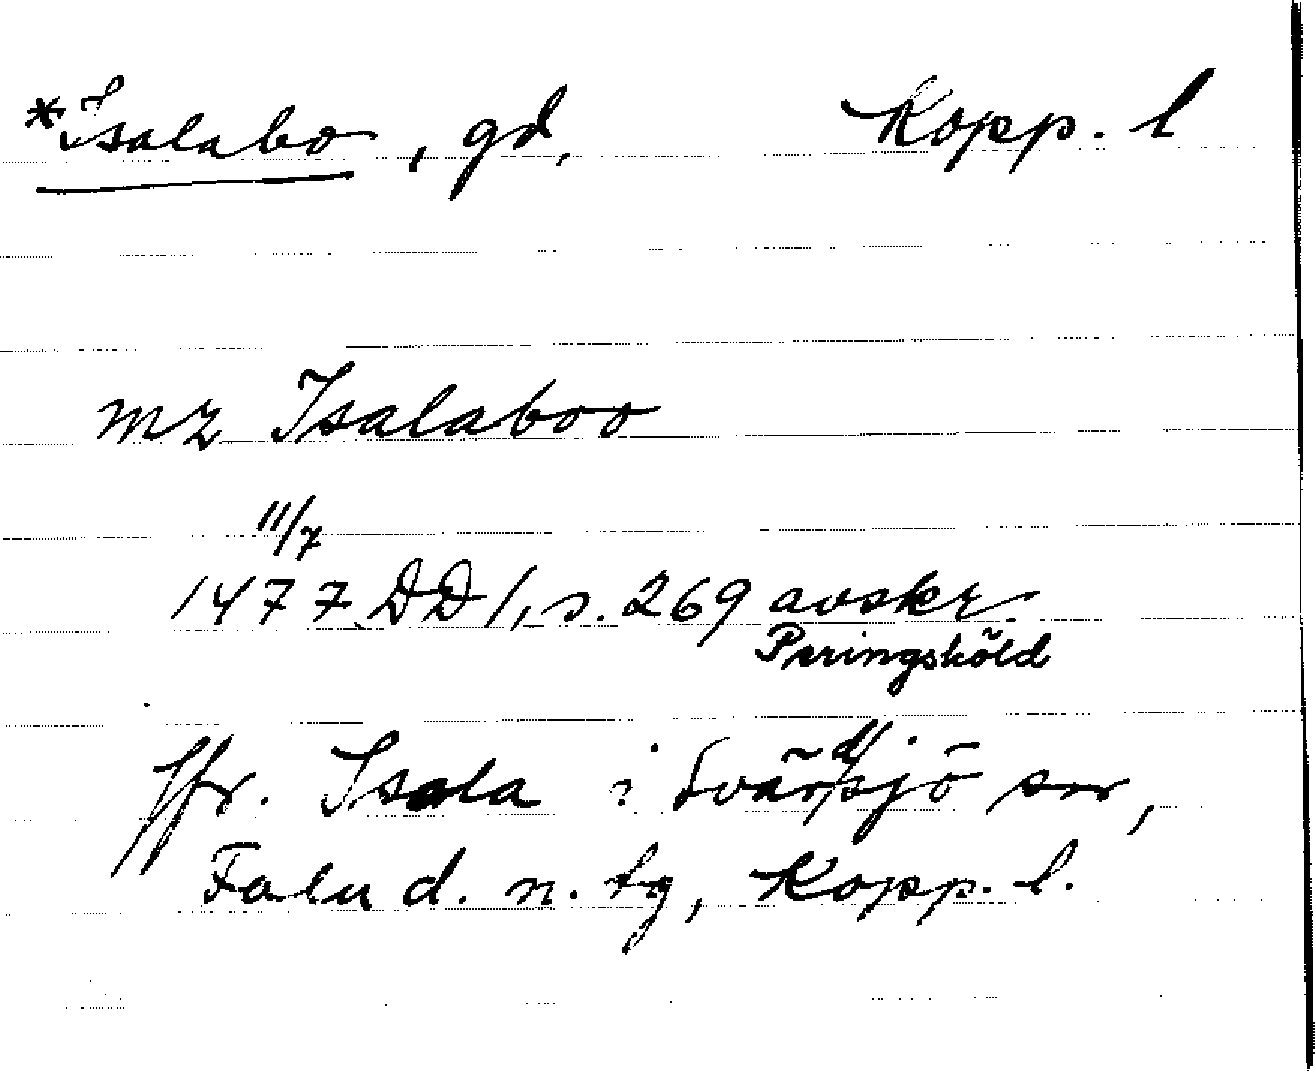 *Isalabo, gd, Kopp. l
mz Isalaboo
11/7
1477 DD 1, s. 269 avskr.
Peringsköld
Jfr. Isala i Svärdsjö sn,
Falu d. n. tg, Kopp. l.